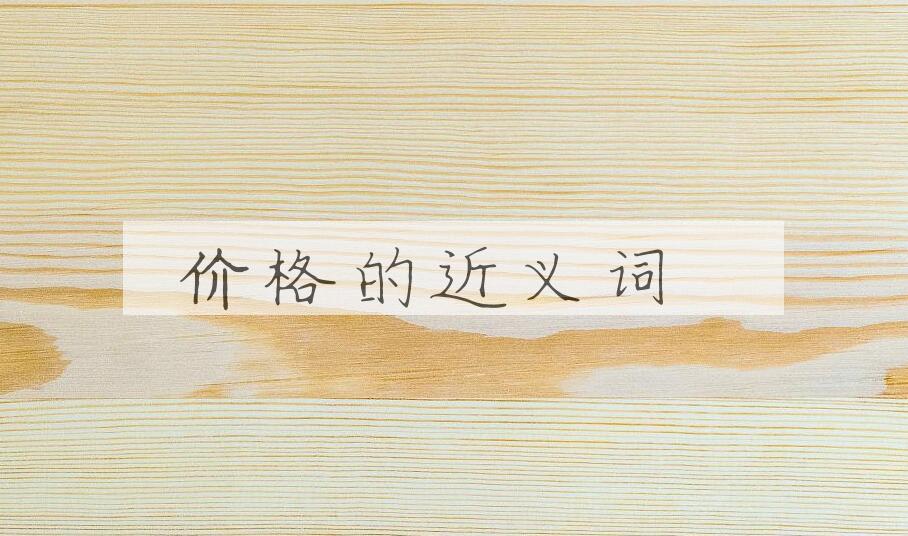 价格的近义词